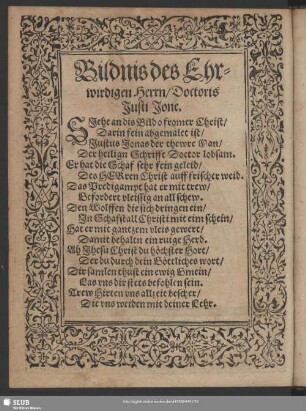 Bildnis des Ehr-
wirdigen Herrn/Doctoris
Justi Jone.
SJehe an dis Bild o fromer Christ/
Darin fein abgemalet ist/
Justus Jonas der thewre Man/
Der heiligen Schrifft Doctor lobsam.
Er hat die Schaf sehr fein geleid/
Des HERren Christ auff frischer weid.
Das Predigampt hat er mit trew/
Gefordert vleissig an all schew.
Den Wolffen die sich dringen ein/
In Schafstall Christi mit eim schein/
Hat er mit gantzem vleis gewert/
Damit behalten ein ruige Herd.
Ah Jhesu Christ du höchster Hort/
Der du durch dein Göttliches wort/
Dir samlen thust ein ewig Gmein/
Las vns dir stets befohlen sein.
Trew Hirten vns allzeit bescher/
Die vns weiden mit deiner Lehr.
SLUB
Wir führen Wissen.